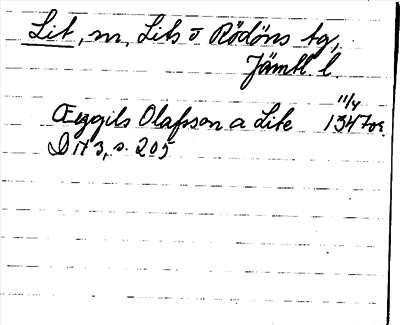 Lit, m, Lits o Rödöns tg,
Jämtl l.
11/4
Æggils Olafson a Lite 1347 or.
DN 3, s. 205